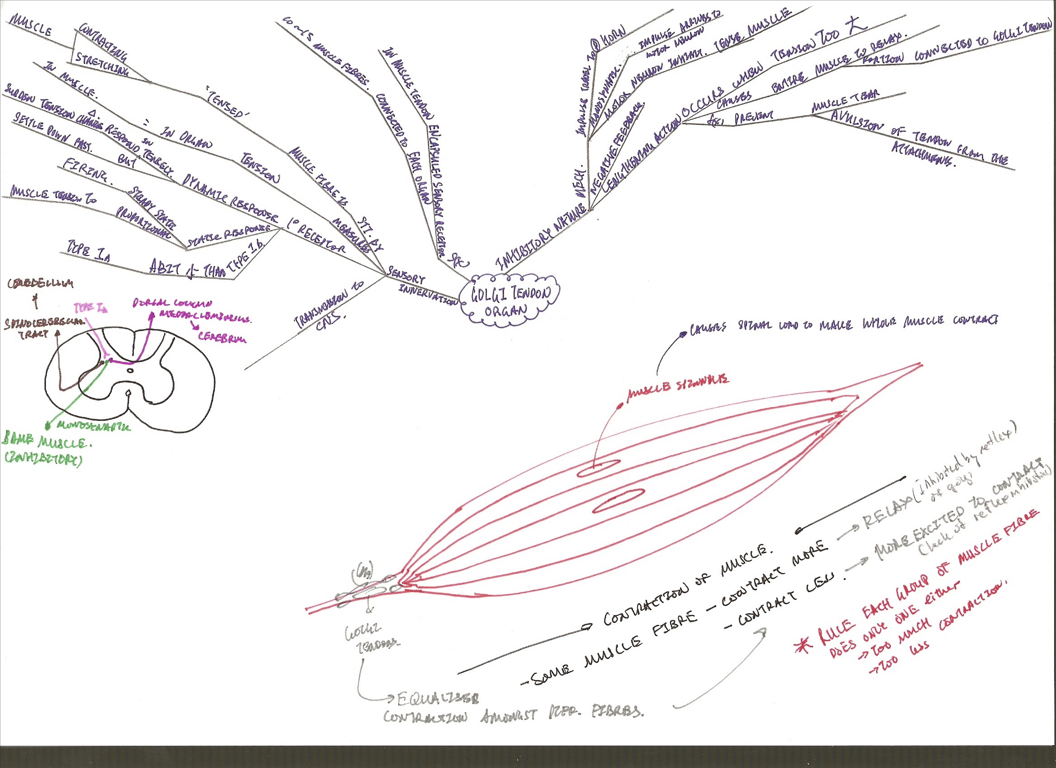 MUSCLE
CONTRACTING
STRETCHING
'TENSED'
MUSCLE FIBRE IS
STI. BY
IN MUSCLE.
= IN ORGAN
TENSION
MEASURES
SUDDEN TENSION CHANGES
Δ. RESPOND INTENSELY
SETTLE DOWN FAST.
BUT
IN
DYNAMIC RESPONSE
1° RECEPTOR
FIRING.
STEADY STATE
MUSCLE TENSION TO
PROPORTIONAL
STATIC RESPONSE
TYPE Ia
A BIT ↓ THAN TYPE Ib
SENSORY
INNERVATION
TRANSMISSION TO
CNS.
10-15 MUSCLE FIBRES.
CONNECTED TO
EACH ORGAN
IN MUSCLE TENDON
ENCAPSULED SENSORY RECEPTOR
GOLGI TENDON
ORGAN
INHIBITORY NATURE
MECH.
IMPULSE TRAVEL TO
HORN
IMPULSE
TO
MOTOR NEURON
MOTOR NEURON INHIBIT. TENSE MUSCLE
NEGATIVE FEEDBACK
LENGTHENING ACTION
OCCURS WHEN TENSION TOO ↑
CAUSES ENTIRE MUSCLE TO RELAX.
PORTION CONNECTED TO GOLGI TENDON
PREVENT
MUSCLE TEAR
AVULSION OF TENDON FROM THE
ATTACHMENTS.
CEREBELLUM
SPINOCEREBELLUM
TRACT
TYPE Ia
DORSAL COLUMN
MEDIAL LEMNISCUS.
CEREBRUM
MONOSYNAPTIC
SAME MUSCLE.
(INHIBITORY)
CAUSES SPINAL CORD TO MAKE WHOLE MUSCLE CONTRACT
MUSCLE SPINDLE
GOLGI
TENDONS.
EQUALISER
CONTRACTION AMONGST DIFF. FIBRES.
CONTRACTION OF MUSCLE.
- SOME MUSCLE FIBRE - CONTRACT MORE
- CONTRACT LESS.
RELAX (inhibited by reflex)
MORE EXCITED TO CONTRACT
(lack of reflex inhibition)
* RULE EACH GROUP OF MUSCLE FIBRE
DOES ONLY ONE either
→ TOO MUCH CONTRACTION.
→ TOO LESS